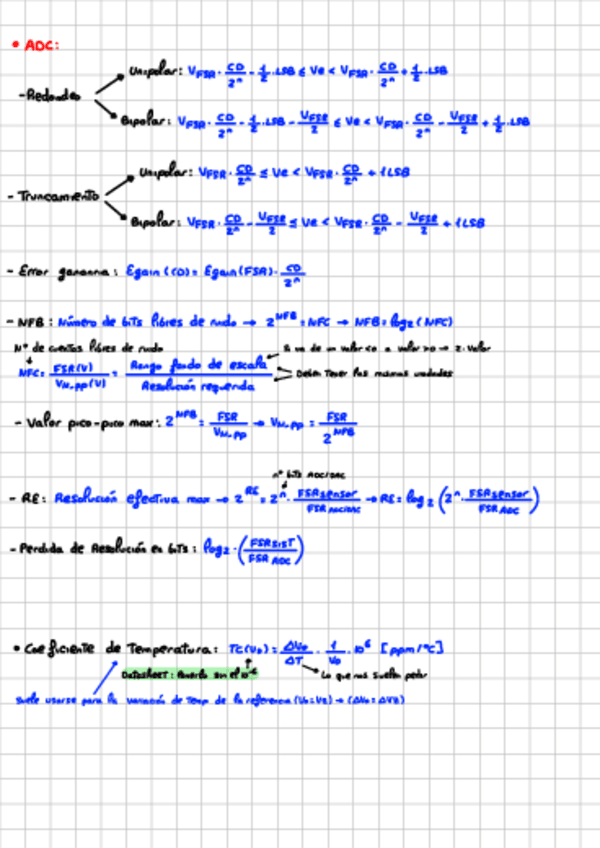 • ADC:
- Redondeo
Unipolar: V_FSR · CD/2^n - 1/2 · LSB ≤ Ve < V_FSR · CD/2^n + 1/2 · LSB
Bipolar: V_FSR · CD/2^n - 1/2 · LSB - V_FSR/2 ≤ Ve < V_FSR · CD/2^n - V_FSR/2 + 1/2 · LSB
- Truncamiento
Unipolar: V_FSR · CD/2^n ≤ Ve < V_FSR · CD/2^n + 1LSB
Bipolar: V_FSR · CD/2^n - V_FSR/2 ≤ Ve < V_FSR · CD/2^n - V_FSR/2 + 1LSB
- Error ganancia: Egain (CD) = Egain (FSR) · CD/2^n
- NFB: Número de bits libres de ruido → 2^NFB = NFC → NFB = log2 (NFC)
Nº de cuentas libres de ruido
Si va de un valor <0 a valor >0 → 2 · Valor
NFC = FSR(V)/V_N,pp(V) = Rango fondo de escala/Resolución requerida
Deben tener las mismas unidades
- Valor pico-pico max: 2^NFB = FSR/V_N,pp → V_N,pp = FSR/2^NFB
nº bits ADC/DAC
- RE: Resolución efectiva max → 2^RE = 2^n · FSR sensor/FSR ADC/DAC → RE = log2 (2^n · FSR sensor/FSR ADC)
- Perdida de Resolución en bits: log2 · (FSR SIST/FSR ADC)
• Coeficiente de Temperatura: TC(Vo) = ΔVo/ΔT · 1/Vo · 10^6 [ppm/°C]
Datasheet: Ponerlo en el 10^-6
Lo que nos suelen pedir
Suele usarse para la variación de temp de la referencia (Vo = Vz) → (ΔVo = ΔVz)